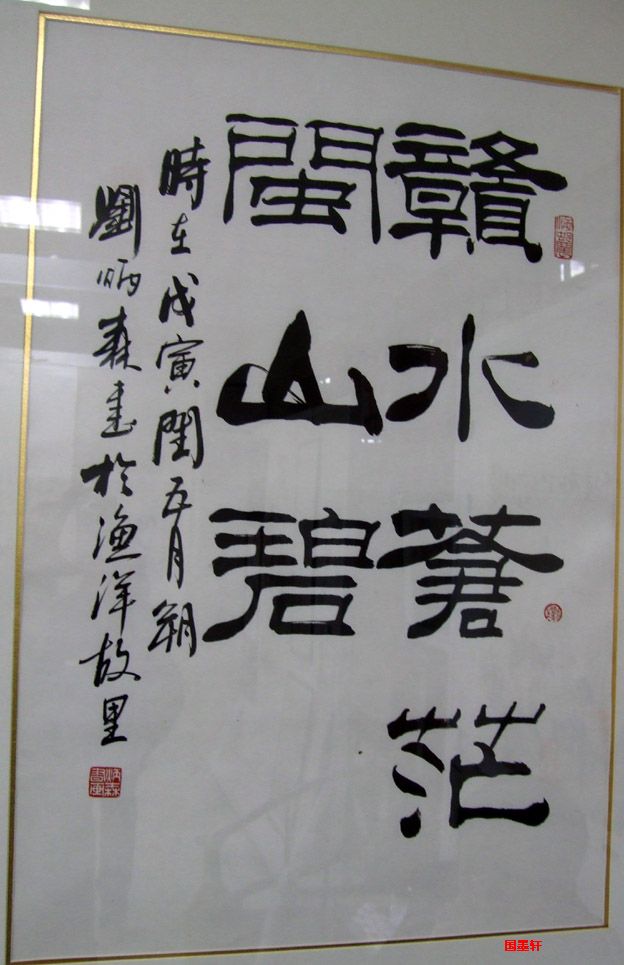 贛水蒼茫
閩山碧
時在戊寅閏五月朔
劉炳森書於漁洋故里
炳森
書画
国墨轩